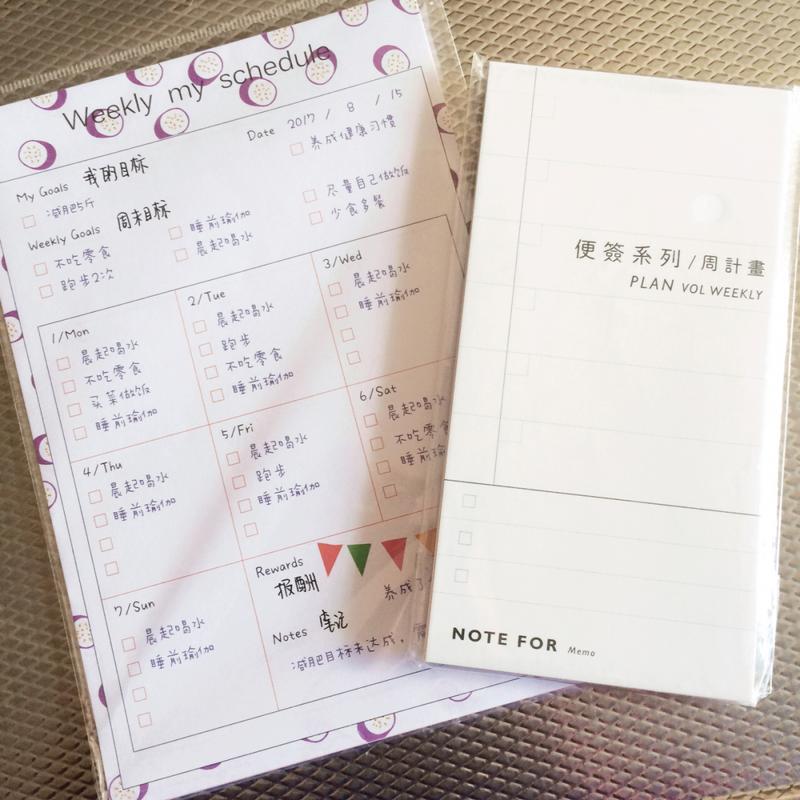 Weekly my schedule
Date 2017 / 8 / 15
My Goals 我的目标
减肥5斤
养成健康习惯
Weekly Goals 周末目标
不吃零食
跑步2次
睡前瑜伽
晨起喝水
尽量自己做饭
少食多餐
1/Mon
晨起喝水
不吃零食
买菜做饭
睡前瑜伽
2/Tue
晨起喝水
跑步
不吃零食
睡前瑜伽
3/Wed
晨起喝水
睡前瑜伽
4/Thu
晨起喝水
睡前瑜伽
5/Fri
晨起喝水
跑步
睡前瑜伽
6/Sat
晨起喝水
不吃零食
睡前瑜伽
7/Sun
晨起喝水
睡前瑜伽
Rewards 报酬
养成了
Notes 笔记
减肥目标未达成，
便簽系列/周計畫
PLAN VOL WEEKLY
NOTE FOR Memo